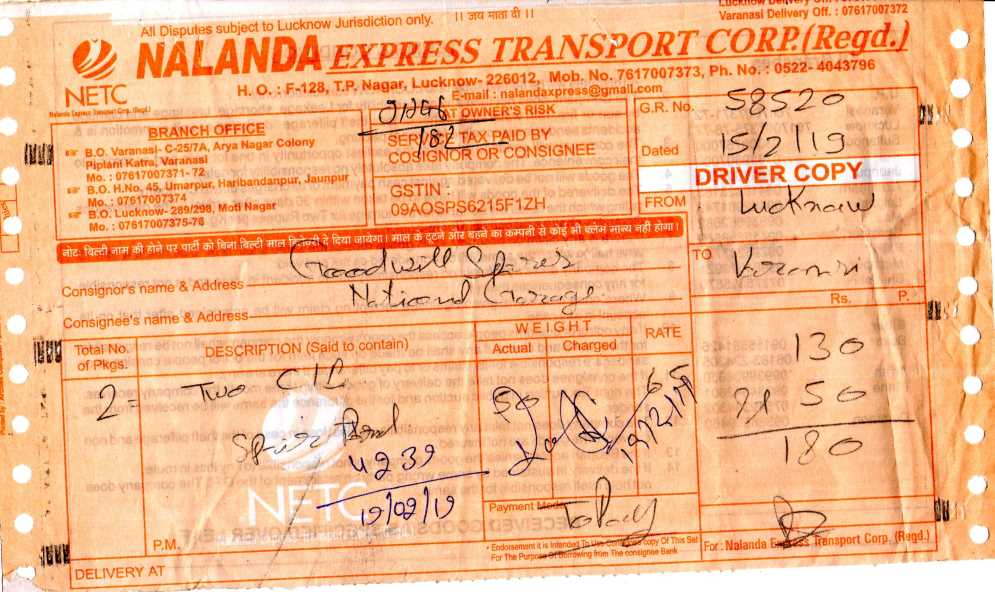 All Disputes subject to Lucknow Jurisdiction only. ।। जय माता दी ।।
Varanasi Delivery Off. : 07617007372
NALANDA EXPRESS TRANSPORT CORP.(Regd.)
NETC
H. O. : F-128, T.P. Nagar, Lucknow- 226012, Mob. No. 7617007373, Ph. No. : 0522- 4043796
E-mail : nalandaxpress@gmail.com
BRANCH OFFICE
B.O. Varanasi- C-25/7A, Arya Nagar Colony
Piplani Katra, Varanasi
Mo. : 07617007371- 72
B.O. H.No. 45, Umarpur, Haribandanpur, Jaunpur
Mo. : 07617007374
B.O. Lucknow- 289/298, Moti Nagar
Mo. : 07617007375-76
AT OWNER'S RISK
182
SERVICE TAX PAID BY
COSIGNOR OR CONSIGNEE
GSTIN :
09AOSPS6215F1ZH
G.R. No. 58520
Dated 15/2/19
DRIVER COPY
FROM Lucknow
नोट: बिल्टी नाम की होने पर पार्टी को बिना बिल्टी माल दे दिया जायेगा। माल के टूटने और बहने का कम्पनी से कोई भी क्लेम मान्य नहीं होगा।
TO Varanasi
Consignor's name & Address Goodwill Spares
Consignee's name & Address National Garrage
Rs. P.
Total No. of Pkgs.
DESCRIPTION (Said to contain)
WEIGHT
Actual Charged
RATE
2= Two C/L 50 65 130
50
180
4239
19/02/19
19/2/19
NETC
Payment Mode To Pay
P.M.
Endorsement it is Intended To Use Copy Of This Set
For The Purpose Of Borrowing from The consignee Bank
For : Nalanda Express Transport Corp. (Regd.)
DELIVERY AT